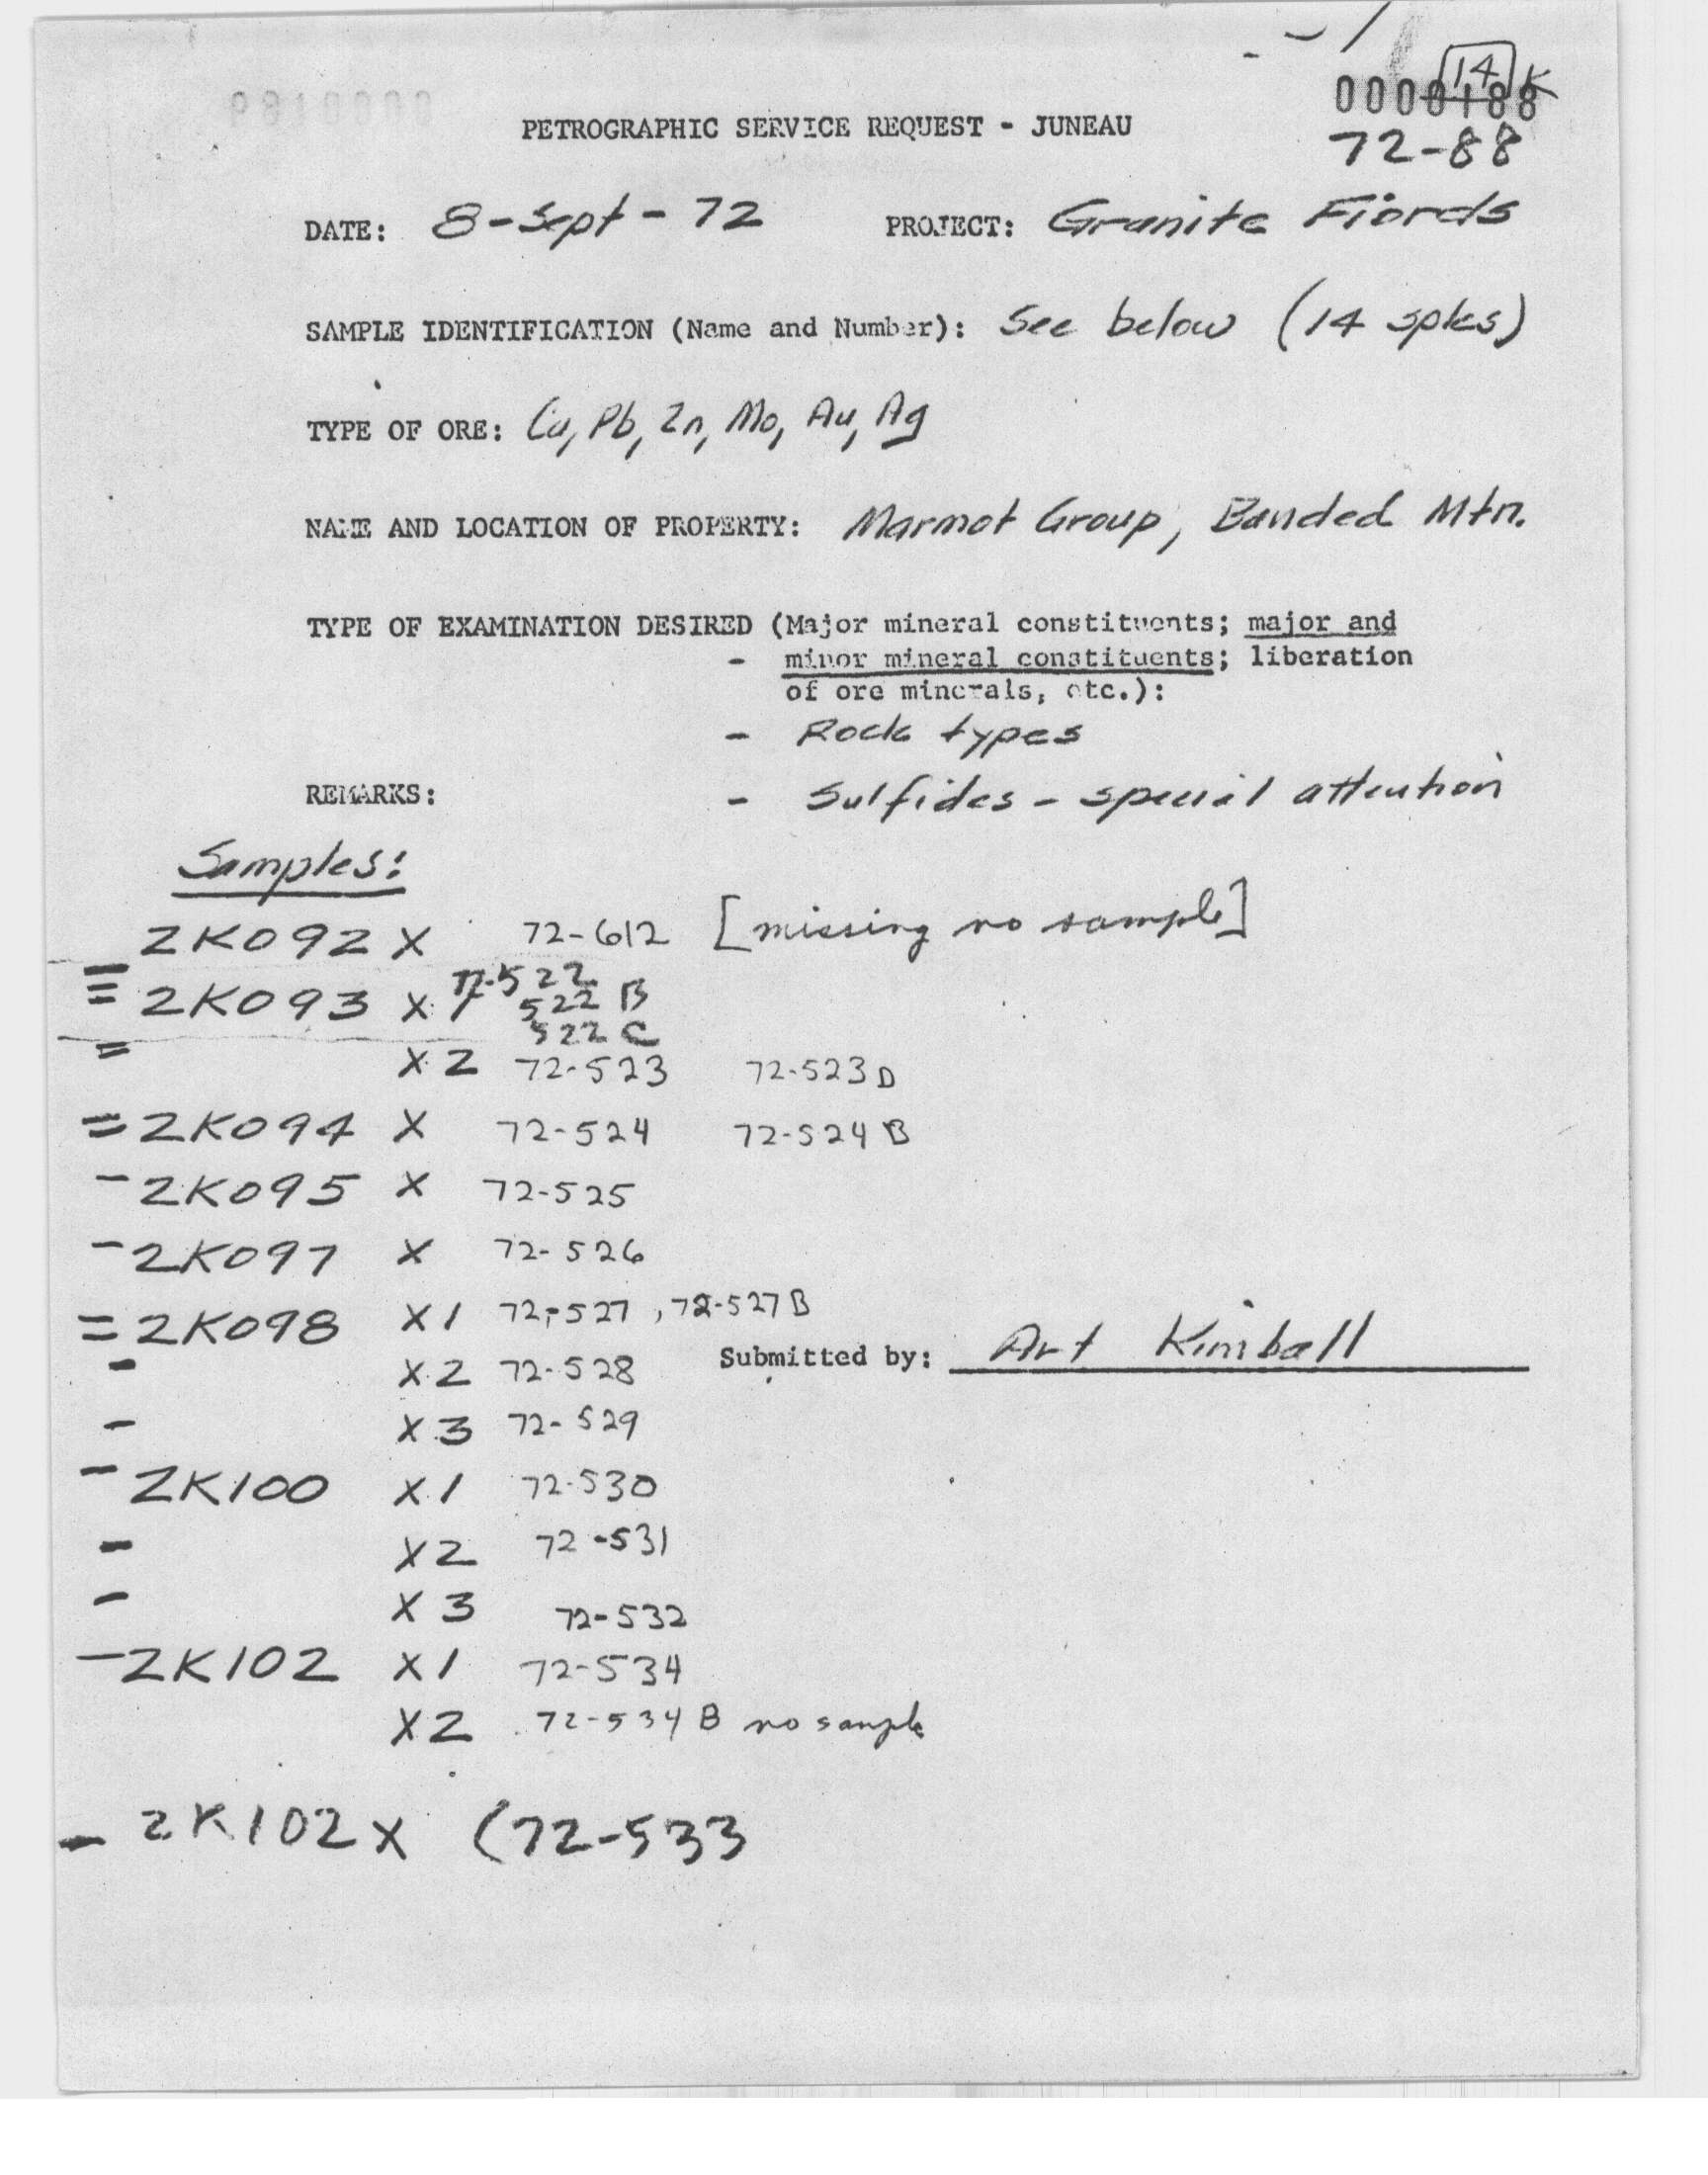 14 K
0000188
72-88
PETROGRAPHIC SERVICE REQUEST - JUNEAU
DATE: 8-Sept-72 PROJECT: Granite Fiords
SAMPLE IDENTIFICATION (Name and Number): See below (14 sples)
TYPE OF ORE: Cu, Pb, Zn, Mo, Au, Ag
NAME AND LOCATION OF PROPERTY: Marmot Group, Banded Mtn.
TYPE OF EXAMINATION DESIRED (Major mineral constituents; major and
- minor mineral constituents; liberation
of ore minerals, etc.):
- Rock types
REMARKS: - Sulfides - special attention
Samples:
2K092 X 72-612 [missing no sample]
72-522
≡ 2K093 X 1 522 B
522 C
= X 2 72-523 72-523 D
= 2K094 X 72-524 72-524 B
- 2K095 X 72-525
- 2K097 X 72-526
= 2K098 X1 72-527, 72-527 B
Submitted by: Art Kimball
- X2 72-528
- X3 72-529
- 2K100 X1 72-530
- X2 72-531
- X3 72-532
- 2K102 X1 72-534
X2 72-534 B no sample
- 2K102 X (72-533